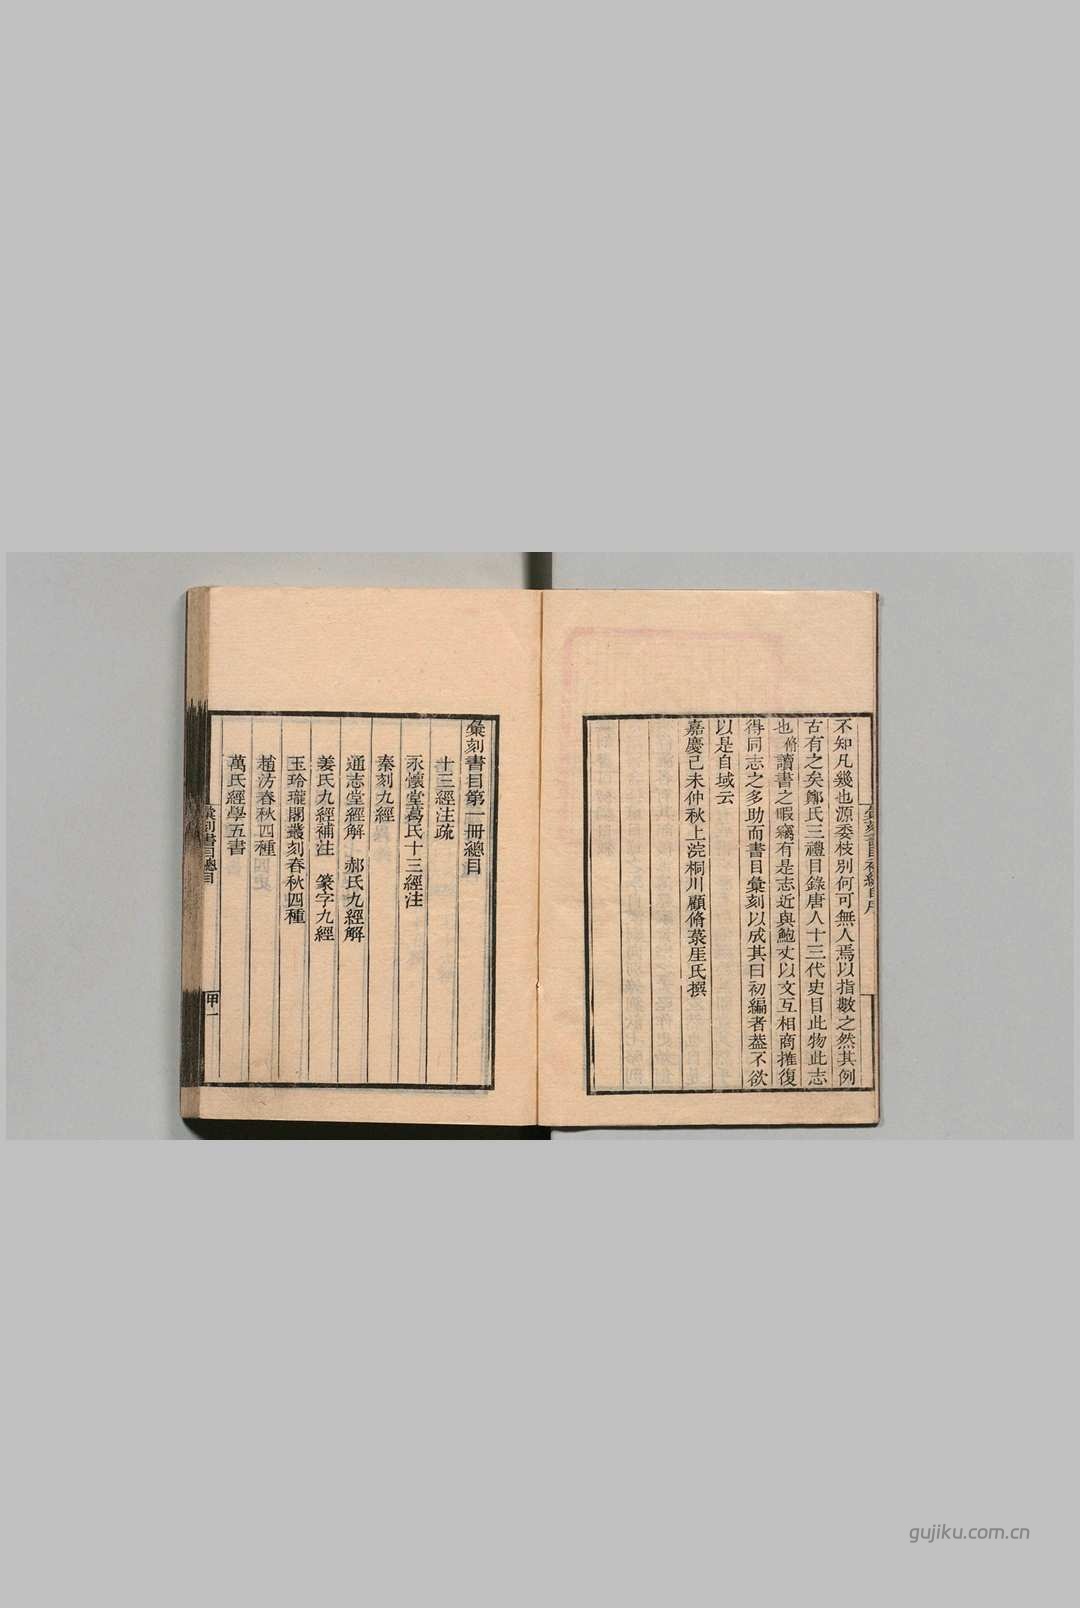 不知凡幾也源委枝別何可無人焉以指數之然其例
古有之矣鄭氏三禮目錄唐人十三代史目此物此志
也脩讀書之暇竊有是志近與鮑丈以文互相商推復
得同志之多助而書目彙刻以成其曰初編者葢不欲
以是自域云
嘉慶己未仲秋上浣桐川顧脩菉厓氏撰
彙刻書目第一冊總目
十三經注疏
永懷堂葛氏十三經注
秦刻九經
通志堂經解 郝氏九經解
姜氏九經補注 篆字九經
玉玲瓏閣叢刻春秋四種
趙汸春秋四種
萬氏經學五書
彙刻書目總目
甲一
gujiku.com.cn